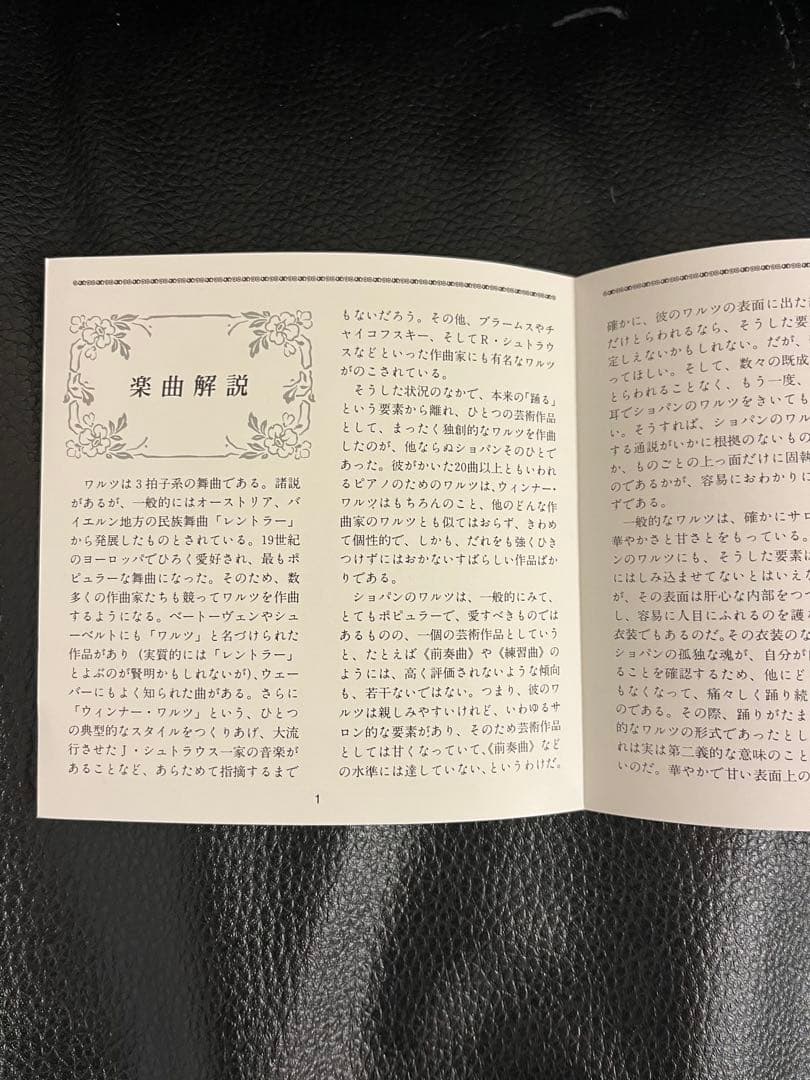 楽曲解説
ワルツは3拍子系の舞曲である。諸説
があるが、一般的にはオーストリア、バ
イエルン地方の民族舞曲「レントラー」
から発展したものとされている。19世紀
のヨーロッパでひろく愛好され、最もポ
ピュラーな舞曲になった。そのため、数
多くの作曲家たちも競ってワルツを作曲
するようになる。ベートーヴェンやシュ
ーベルトにも「ワルツ」と名づけられた
作品があり(実質的には「レントラー」
とよぶのが賢明かもしれないが)、ウェー
バーにもよく知られた曲がある。さらに
「ウィンナー・ワルツ」という、ひとつ
の典型的なスタイルをつくりあげ、大流
行させたJ・シュトラウス一家の音楽が
あることなど、あらためて指摘するまで
もないだろう。その他、ブラームスやチ
ャイコフスキー、そしてR・シュトラウ
スなどといった作曲家にも有名なワルツ
がのこされている。
そうした状況のなかで、本来の「踊る」
という要素から離れ、ひとつの芸術作品
として、まったく独創的なワルツを作曲
したのが、他ならぬショパンそのひとで
あった。彼がかいた20曲以上ともいわれ
るピアノのためのワルツは、ウィンナー・
ワルツはもちろんのこと、他のどんな作
曲家のワルツとも似てはおらず、きわめ
て個性的で、しかも、だれをも強くひき
つけずにはおかないすばらしい作品ばか
りである。
ショパンのワルツは、一般的にみて、
とてもポピュラーで、愛すべきものでは
あるものの、一個の芸術作品としていう
と、たとえば《前奏曲》や《練習曲》の
ようには、高く評価されないような傾向
も、若干ないではない。つまり、彼のワ
ルツは親しみやすいけれど、いわゆるサ
ロン的な要素があり、そのため芸術作品
としては甘くなっていて、《前奏曲》など
の水準には達していない、というわけだ。
1
確かに、彼のワルツの表面に出た
だけとらわれるなら、そうした要
定しえないかもしれない。だが、
ってほしい。そして、数々の既成
とらわれることなく、もう一度、
耳でショパンのワルツをきいても
い。そうすれば、ショパンのワル
する通説がいかに根拠のないもの
か、ものごとの上っ面だけに固執
のであるかが、容易におわかりに
ずである。
一般的なワルツは、確かにサロ
華やかさと甘さとをもっている。
ンのワルツにも、そうした要素は
にはしみ込ませてないとはいえな
が、その表面は肝心な内部をつ
し、容易に人目にふれるのを護
衣装でもあるのだ。その衣装のな
ショパンの孤独な魂が、自分が
ることを確認するため、他にど
もなくなって、痛々しく踊り続
のである。その際、踊りがたま
的なワルツの形式であったとし
れは実は第二義的な意味のこと
いのだ。華やかで甘い表面上の